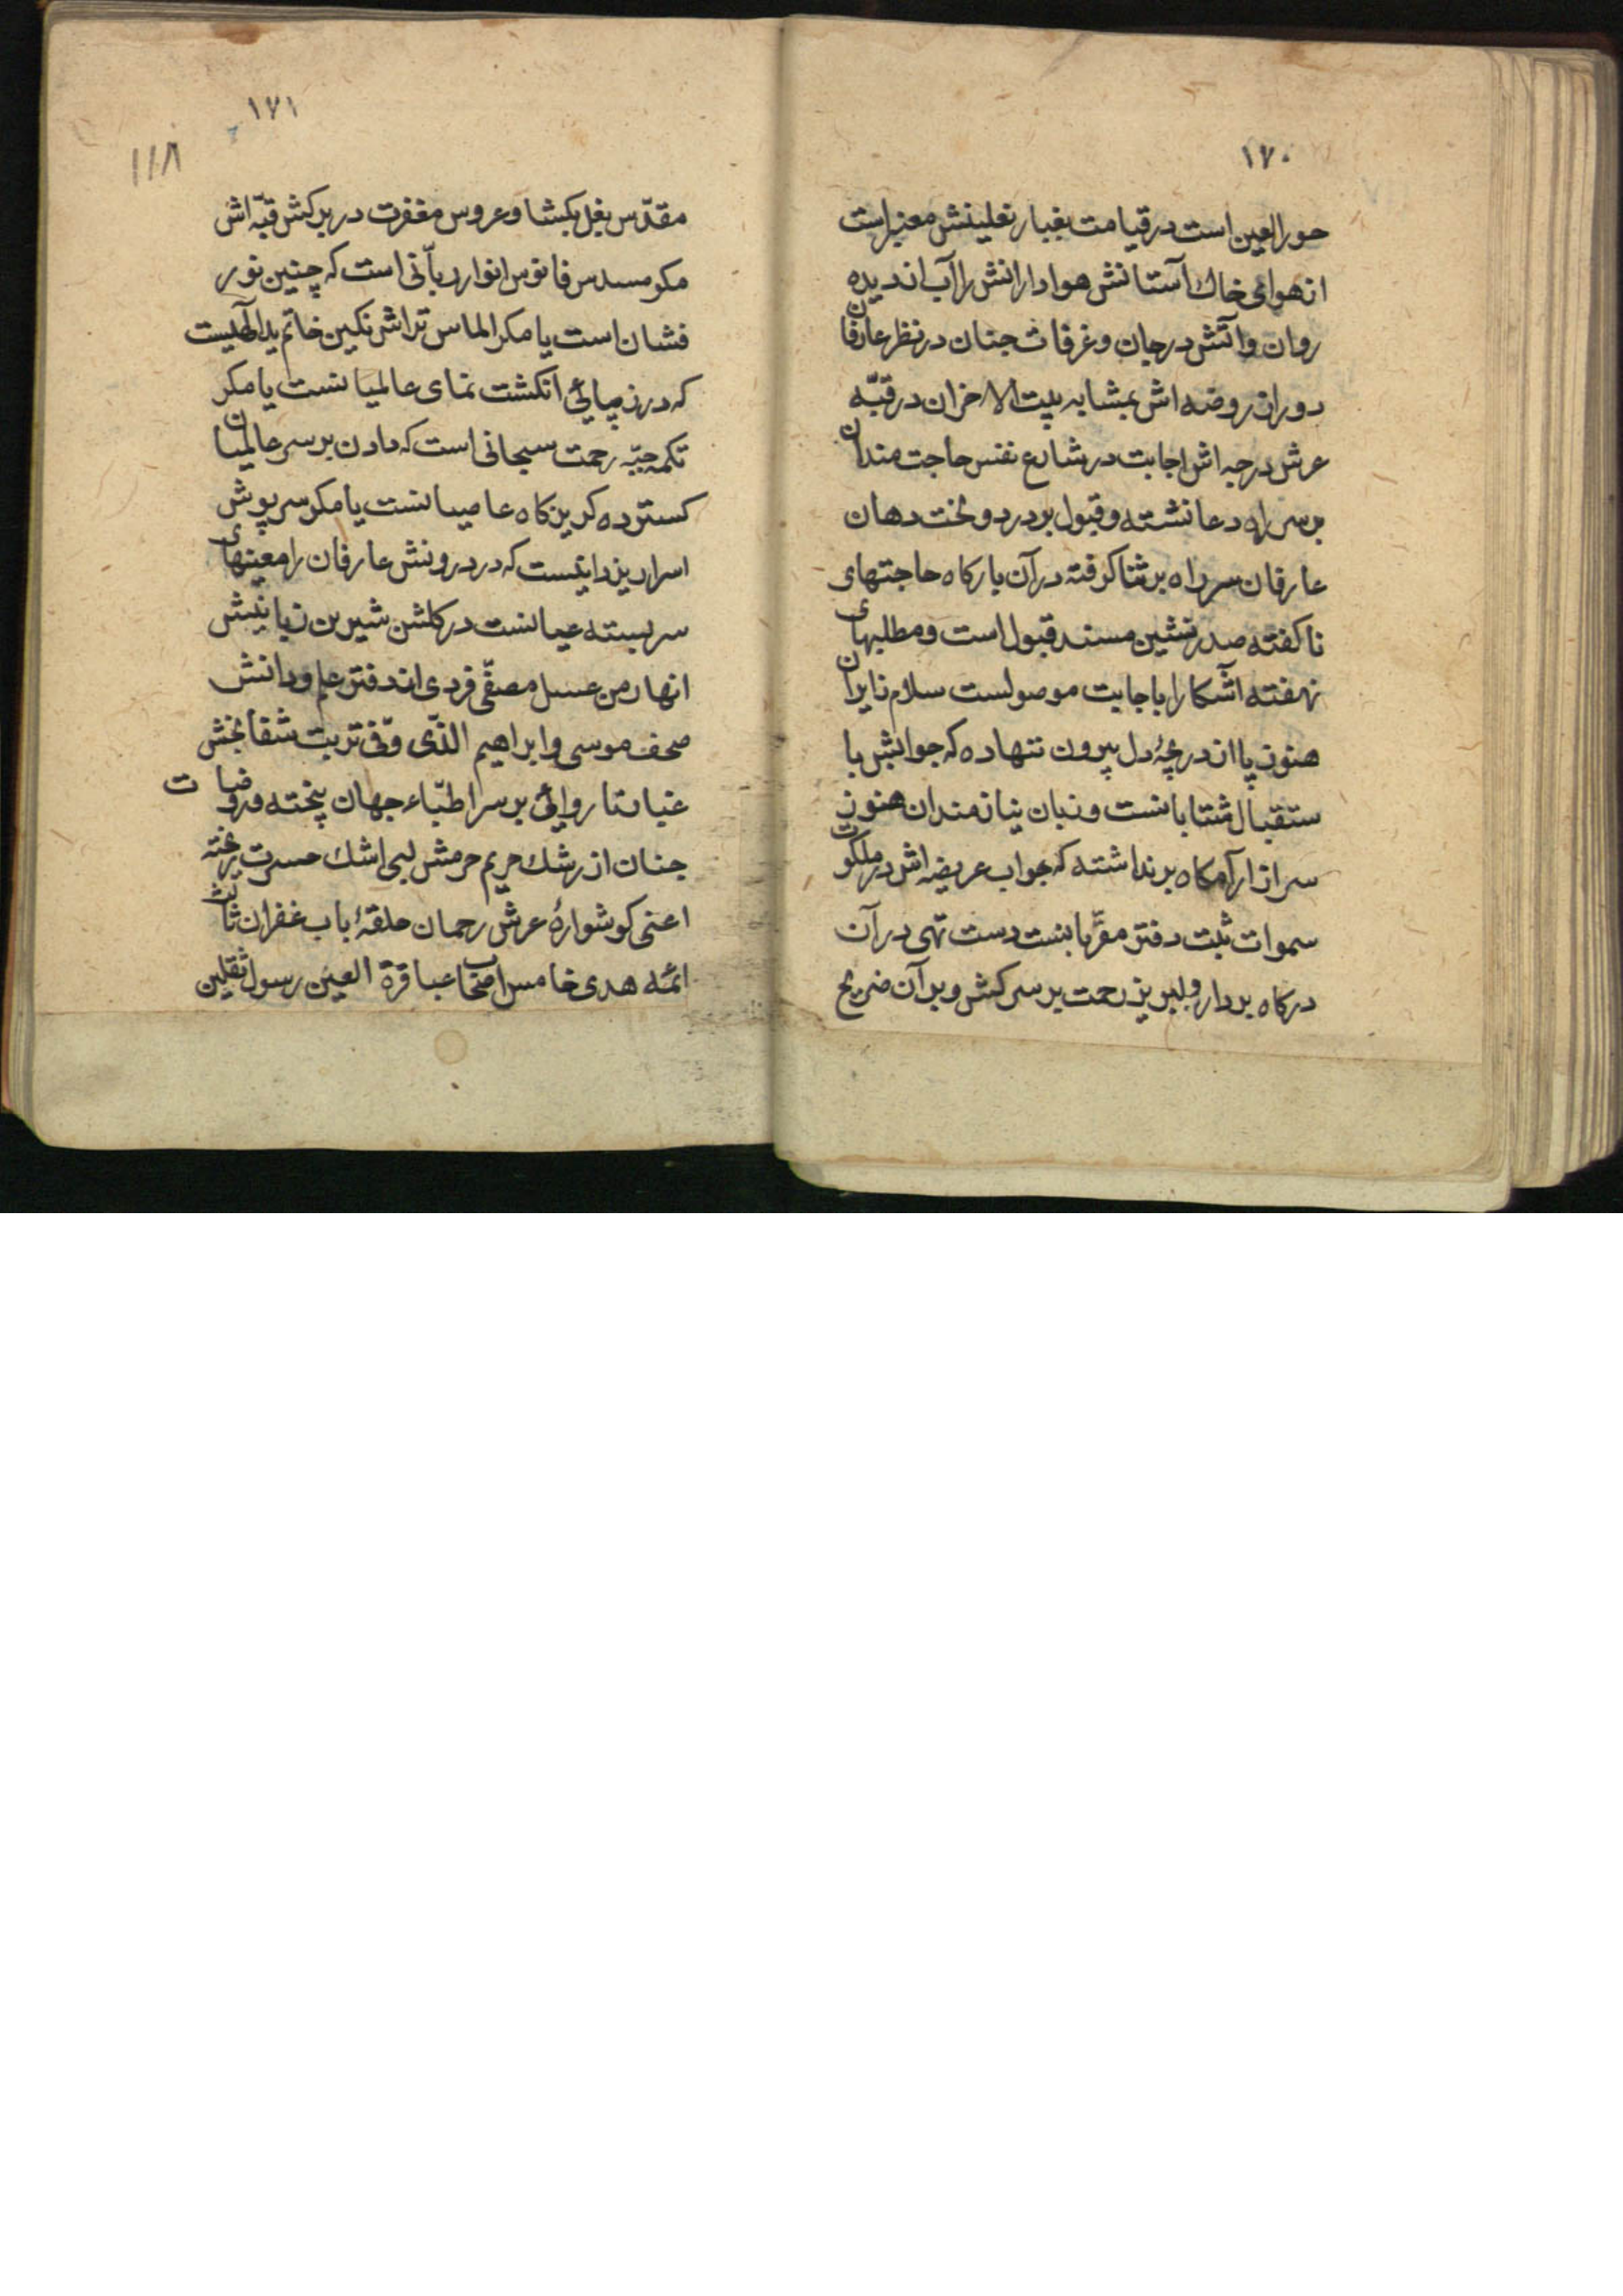 ۱۷۰
حورالعین است در قیامت بغبار نعلینش معنبر است
از هوای خاك آستانش هوادارانش را آب از دیده
روان و آتش در جان و غرفات جنان در نظر عارفان
دور از روضه اش بمشابه بیت الاحزان در قبّه
عرش درجه اش اجابت در شارع نفس حاجت مندان
بر سر راه دعا نشسته و قبول بر در دوخت دهان
عارفان سر راه بر ثنا کرفته در آن بارکاه حاجتهای
ناکفته صدر نشین مسند قبول است و مطلبهای
نهفته آشکارا باجابت موصولست سلام زایران
هنوز پا از دریچهٔ دل بیرون ننهاده که جوابش با
ستقبال شتابانست و زبان نیازمندان هنوز
سر از آرامکاه برنداشته که جواب عریضه اش در ملکوت
سموات ثبت دفتر مقرّبانست دست تهی در آن
درکاه بردار و لبریز رحمت بر سر کش و بر آن ضریح
۱۷۱
۱۱۸
مقدّس بغل بکشا و عروس مغفرت در بر کش قبّه اش
مکر مسدس فانوس انوار ربّانی است که چنین نور
فشان است یا مکر الماس تراش نکین خاتم ید الّهیست
که در زیبائی انکشت نمای عالمیانست یا مکر
تکمه جبّه رحمت سبحانی است که دادن بر سر عالمیان
کسترده کریزکاه عاصیانست یا مکر سرپوش
اسرار یزدانیست که در درونش عارفان را معنیهای
سربسته عیانست در کلشن شیرین زبانیش
انهار من عسل مصفّی فردی از دفتر علم و دانش
صحف موسی و ابراهیم الذّی وفّی تربت شفا بخش
غبار ناروائی بر سر اطبّاء جهان بیخته و روضات
جنان از رشك حریم حرمش لبی اشك حسرت ریخته
اعنی کوشوارهٔ عرش رحمان حلقهٔ باب غفران ثالث
ائمه هدی خامس اصحاب عبا قرة العین رسول ثقلین